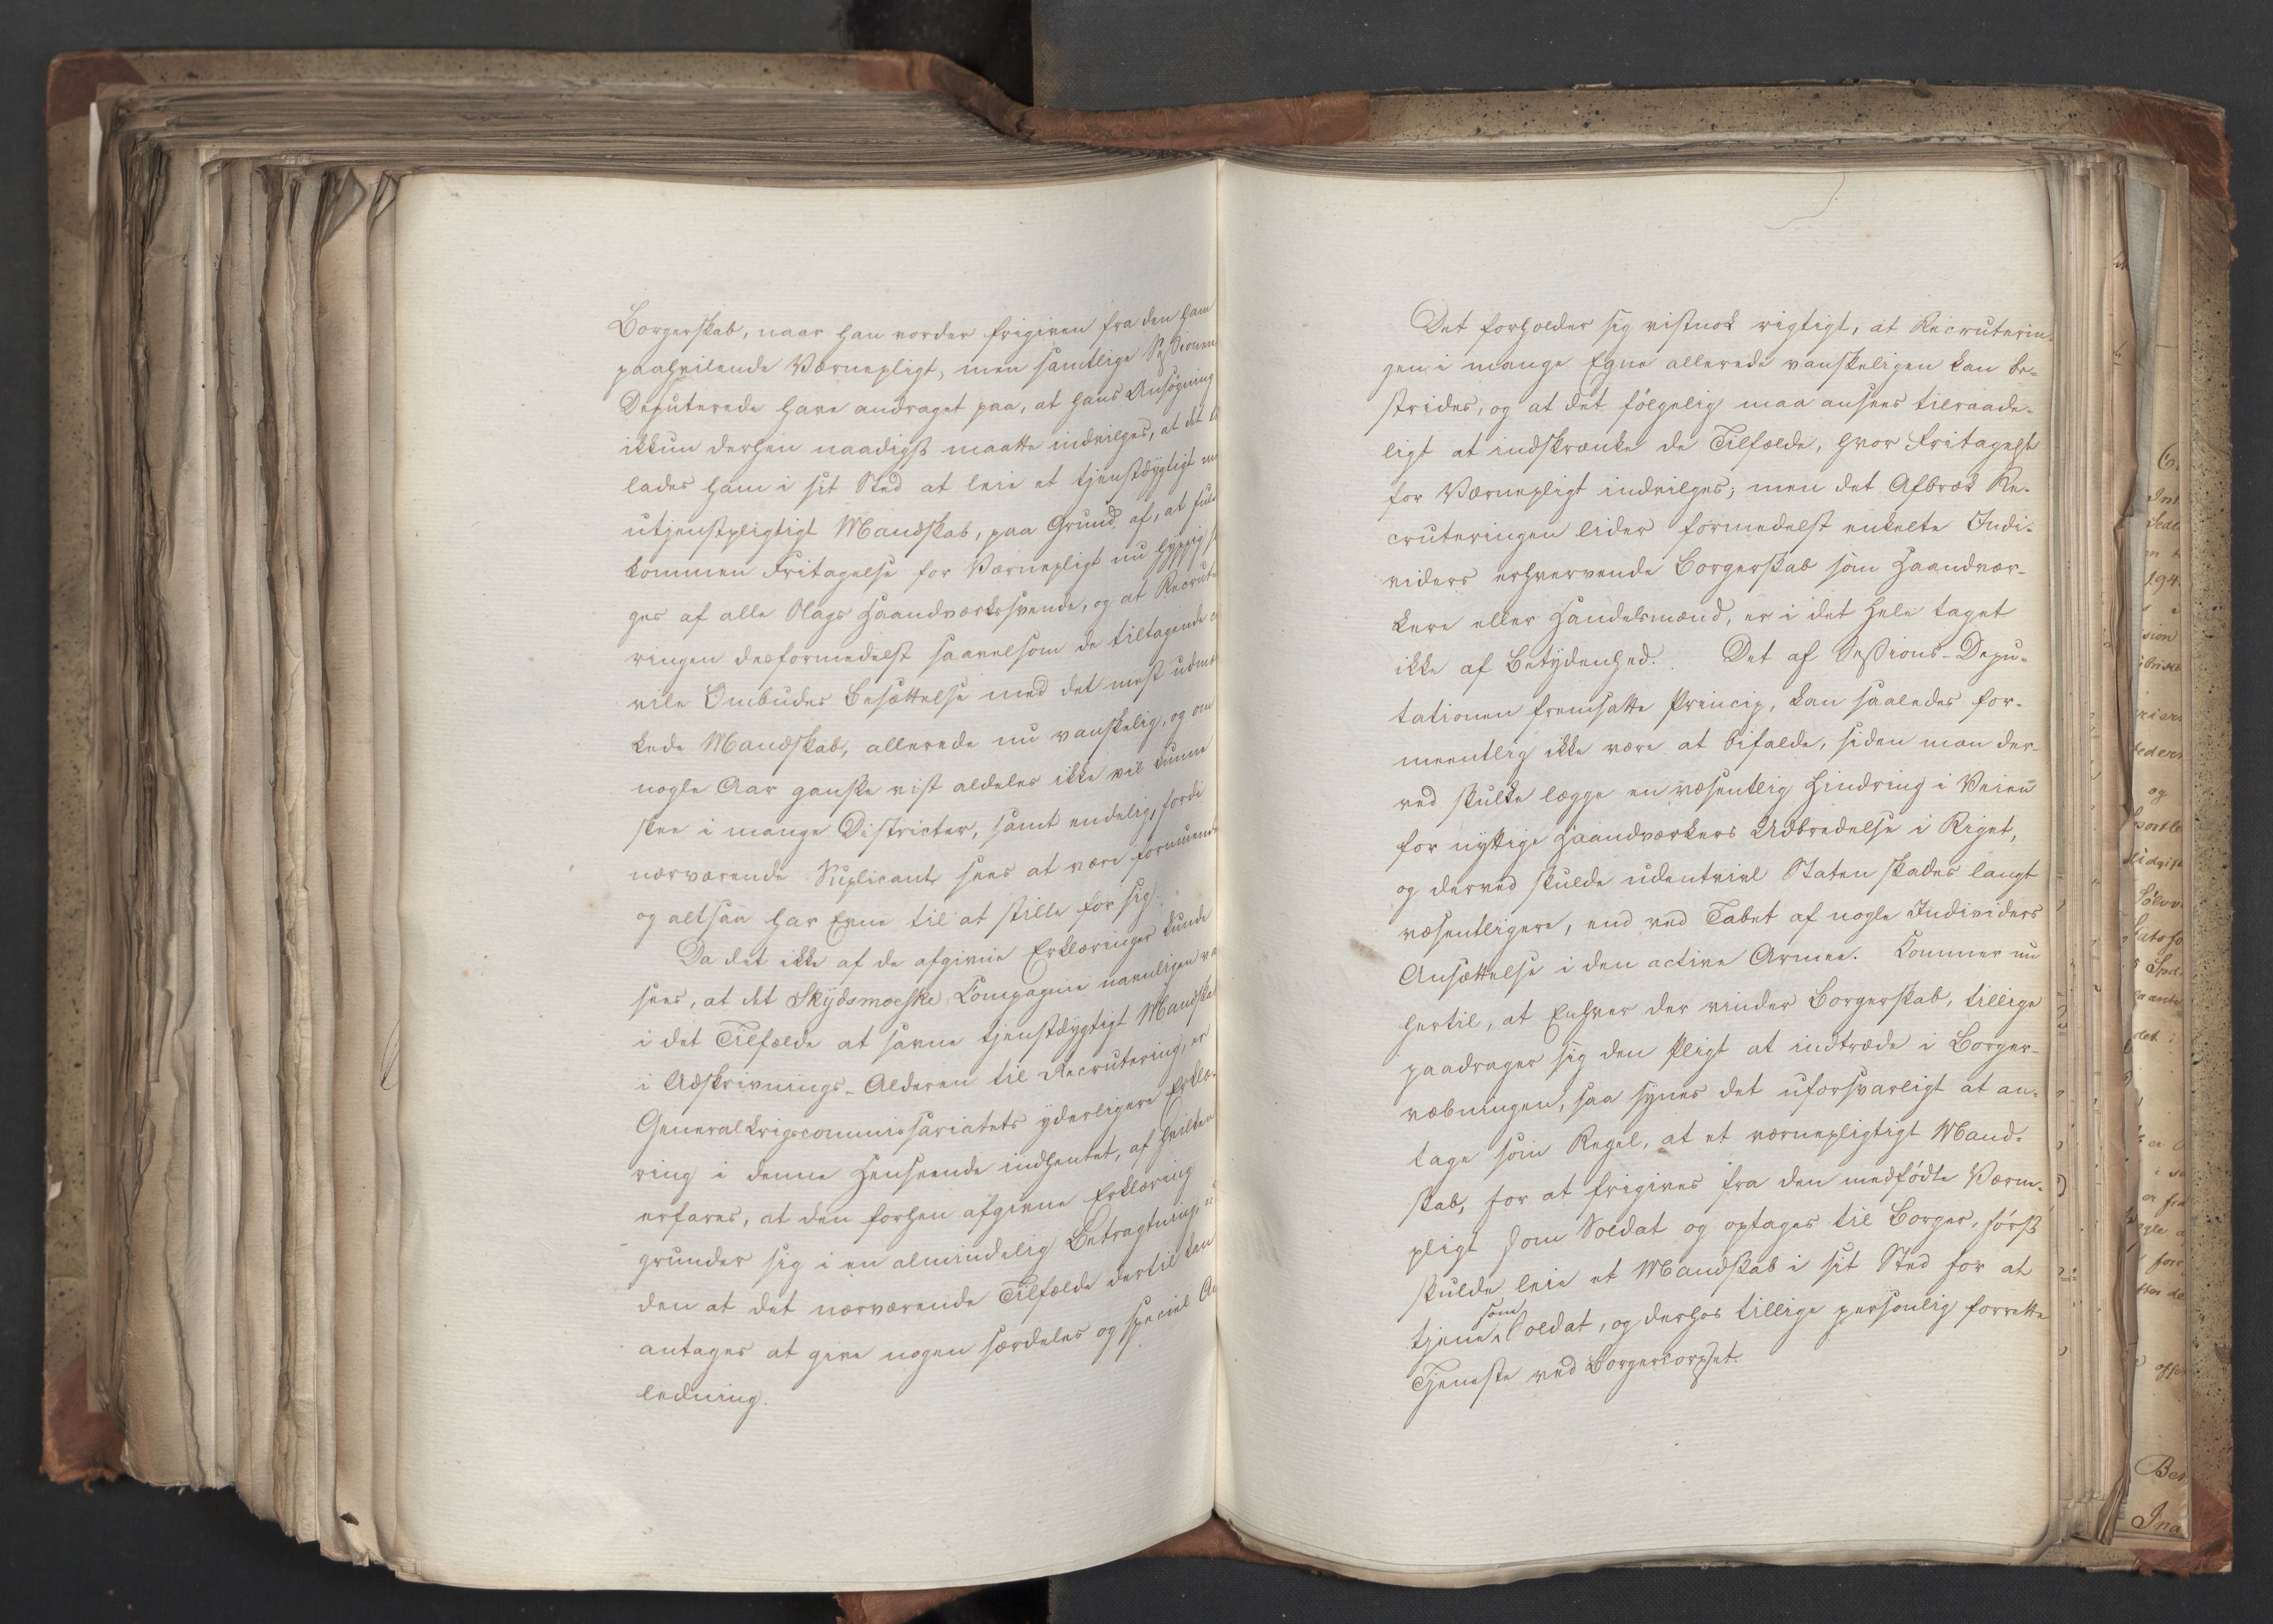 Borgerskab, naar han vorder frigiven fra den ham
paahvilende Værnepligt, men samtlige Sessionens
Deputerede have andraget paa, at hans Ansøgning
ikkun derhen naadigst maatte indvilges, at det
lades ham i sit Sted at leie et tjenstdygtigt
utjenstpligtigt Mandskab, paa Grund af, at fuld
kommen Fritagelse for Værnepligt nu hyppig
ges af alle Slags Haandværkssvende, og at Recrute
ringen desformedelst saavelsom de tiltagende
vile Ombuders Besættelse med det mest udmær
kede Mandskab, allerede nu vanskelig, og om
nogle Aar ganske vist aldeles ikke vil kunne
skee i mange Districter, samt endelig, fordi
nærværende Suplicant sees at være formuende
og altsaa har Evne til at stille for sig.
Da det ikke af de afgivne Erklæringer kunde
sees, at det Skydsmoeske Compagnie navnligen
i det Tilfælde at savne tjenstdygtigt Mandskab
i Udskrivnings-Alderen til Recrutering, er
Generalkrigscommissariatets yderligere Erklæ-
ring i denne Henseende indhentet, af hvilken
erfares, at den forhen afgivne Erklæring
grunder sig i en almindelig Betragtning,
den at det nærværende Tilfælde dertil kan
antages at give nogen særdeles og speciel
ledning.
Det forholder sig vistnok rigtigt, at Recruterin-
gen i mange Egne allerede vanskeligen kan be-
strides, og at det følgelig maa ansees tilraade-
ligt at indskrænke de Tilfælde, hvor Fritagelse
for Værnepligt indvilges; men det Afbræk Re-
cruteringen lider formedelst enkelte Indi-
viders erhvervende Borgerskab som Haandvær-
kere eller Handelsmænd, er i det Hele taget
ikke af Betydenhed. Det af Sessions-Depu-
tationen fremsatte Princip, kan saaledes for-
meentlig ikke være at bifalde, siden man der-
ved skulde lægge en væsentlig Hindring i Veien
for nyttige Haandværkers Udbredelse i Riget,
og derved skulde udentvivl Staten skades langt
væsentligere, end ved Tabet af nogle Individers
Ansættelse i den active Armee. Kommer nu
hertil, at Enhver der vinder Borgerskab, tillige
paadrager sig den Pligt at indtræde i Borger-
væbningen, saa synes det uforsvarligt at an-
tage som Regel, at et værnepligtigt Mand-
skab, for at frigives fra den medfødte Værne-
pligt som Soldat og optages til Borger, først
skulde leie et Mandskab i sit Sted for at
tjene som Soldat, og derhos tillige personlig forrette
Tjeneste ved Borgercorpset.